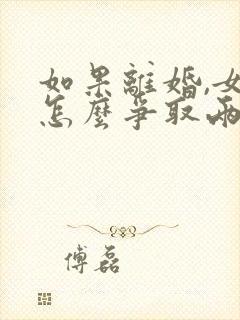 如果離婚,女
怎麼爭取兩
傅磊